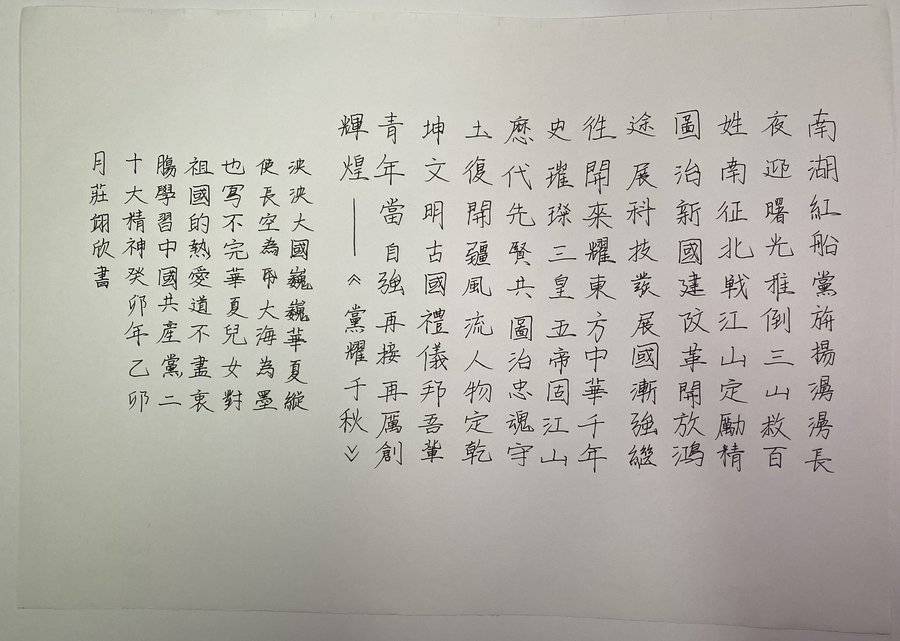 南湖紅船黨旂揚漫漫長
夜迎曙光推倒三山救百
姓南征北戰江山定勵精
圖治新國建改革開放鴻
途展科技發展國漸強繼
往開來耀東方中華千年
史璀璨三皇五帝固江山
歷代先賢共圖治忠魂守
土復開疆風流人物定乾
坤文明古國禮儀邦吾輩
青年當自強再接再厲創
輝煌——《黨耀千秋》
泱泱大國巍巍華夏縱
使長空為帋大海為墨
也寫不完華夏兒女對
祖國的熱愛道不盡衷
腸學習中國共產黨二
十大精神癸卯年乙卯
月莊翊欣書